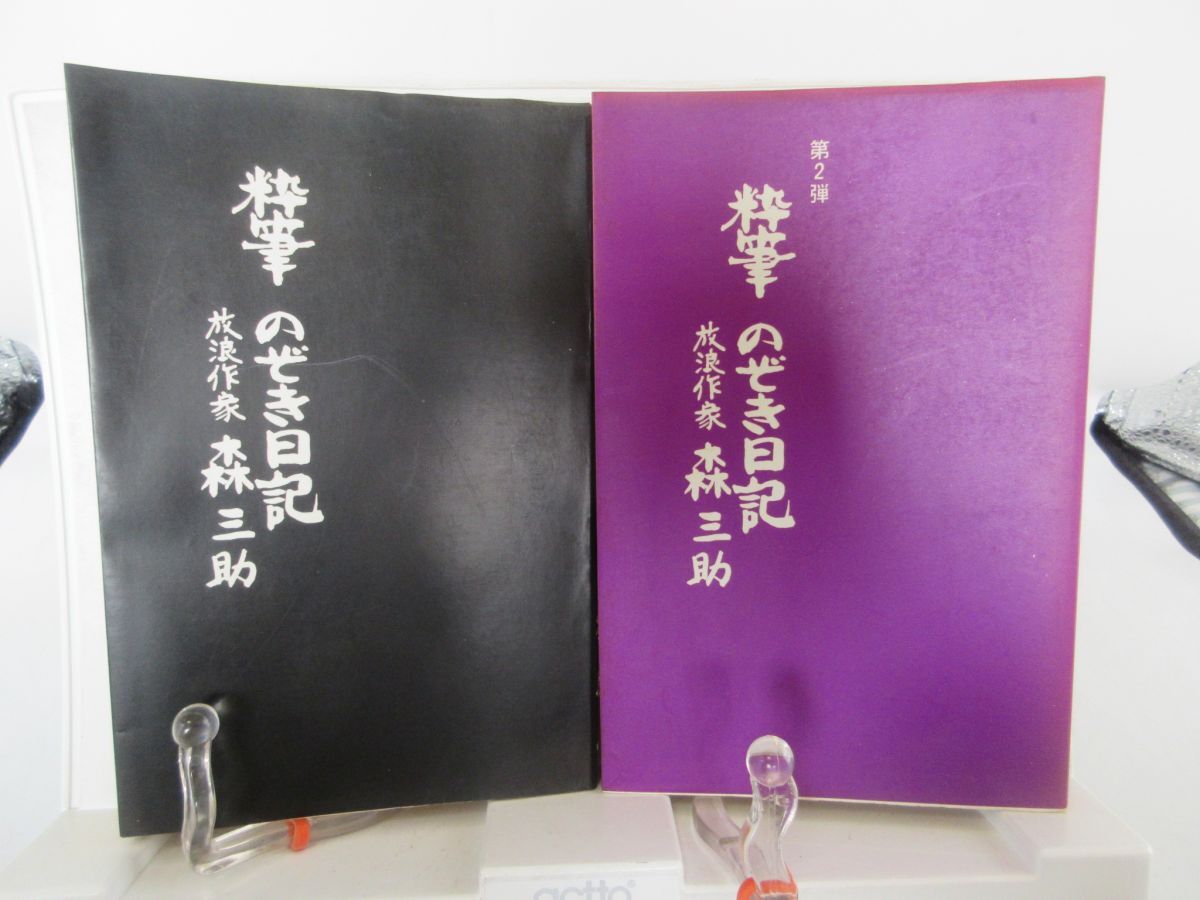 粋筆
のぞき日記
放浪作家 森三助
第2弾
粋筆
のぞき日記
放浪作家 森三助
actto